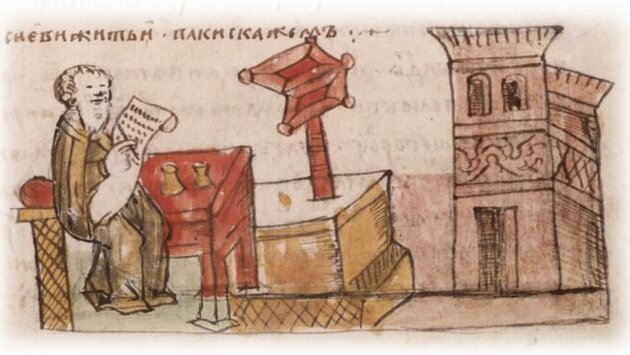 сиеви житьи · паки скажемъ